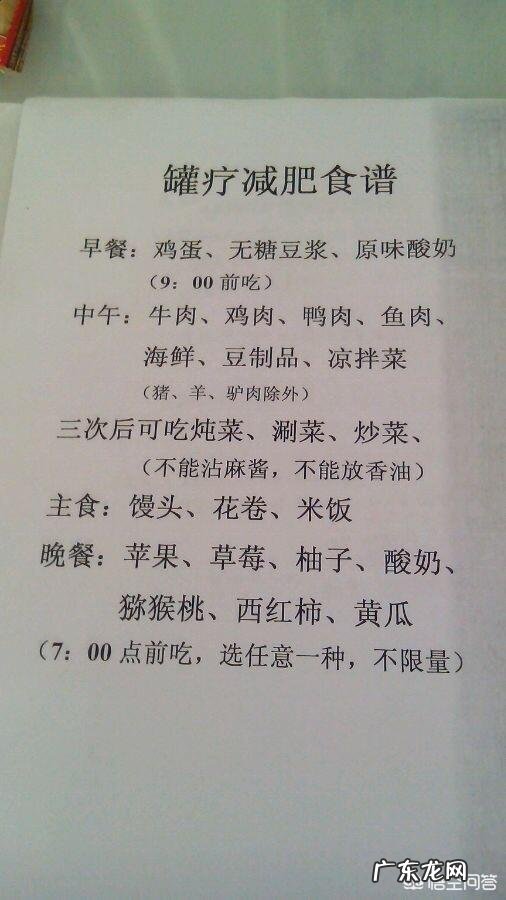 罐疗减肥食谱
早餐：鸡蛋、无糖豆浆、原味酸奶
（9：00前吃）
中午：牛肉、鸡肉、鸭肉、鱼肉、
海鲜、豆制品、凉拌菜
（猪、羊、驴肉除外）
三次后可吃炖菜、涮菜、炒菜、
（不能沾麻酱，不能放香油）
主食：馒头、花卷、米饭
晚餐：苹果、草莓、柚子、酸奶、
猕猴桃、西红柿、黄瓜
（7：00点前吃，选任意一种，不限量）
广东龙网
悟空问答